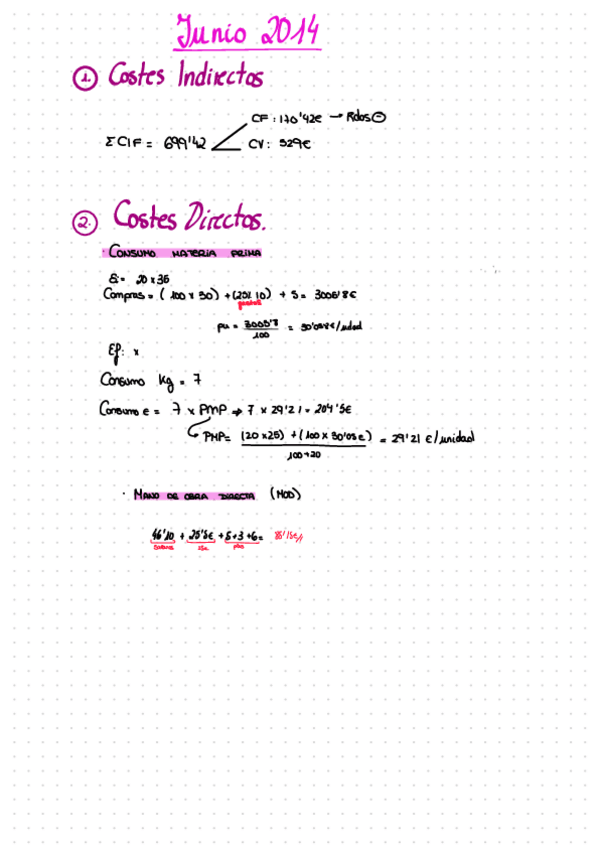 Junio 2014
1. Costes Indirectos
CF: 170'42€ → Rdos ⊖
Σ CIF = 699'42
CV: 529€
2. Costes Directos.
· CONSUMO MATERIA PRIMA
Ei = 20 x 36
Compras = (100 x 30) + + 5 = 3005'8€
gastos
pu = 3005'8 / 100 = 30'058€/udad
Ef: x
Consumo kg = 7
Consumo € = 7 x PMP ⇒ 7 x 29'21 = 204'5€
PMP = (20 x 25) + (100 x 30'05€) / 100+20 = 29'21 €/unidad
· MANO DE OBRA DIRECTA (MOD)
46'10 + 25'5€ + 5+3+6 = 85'15€//